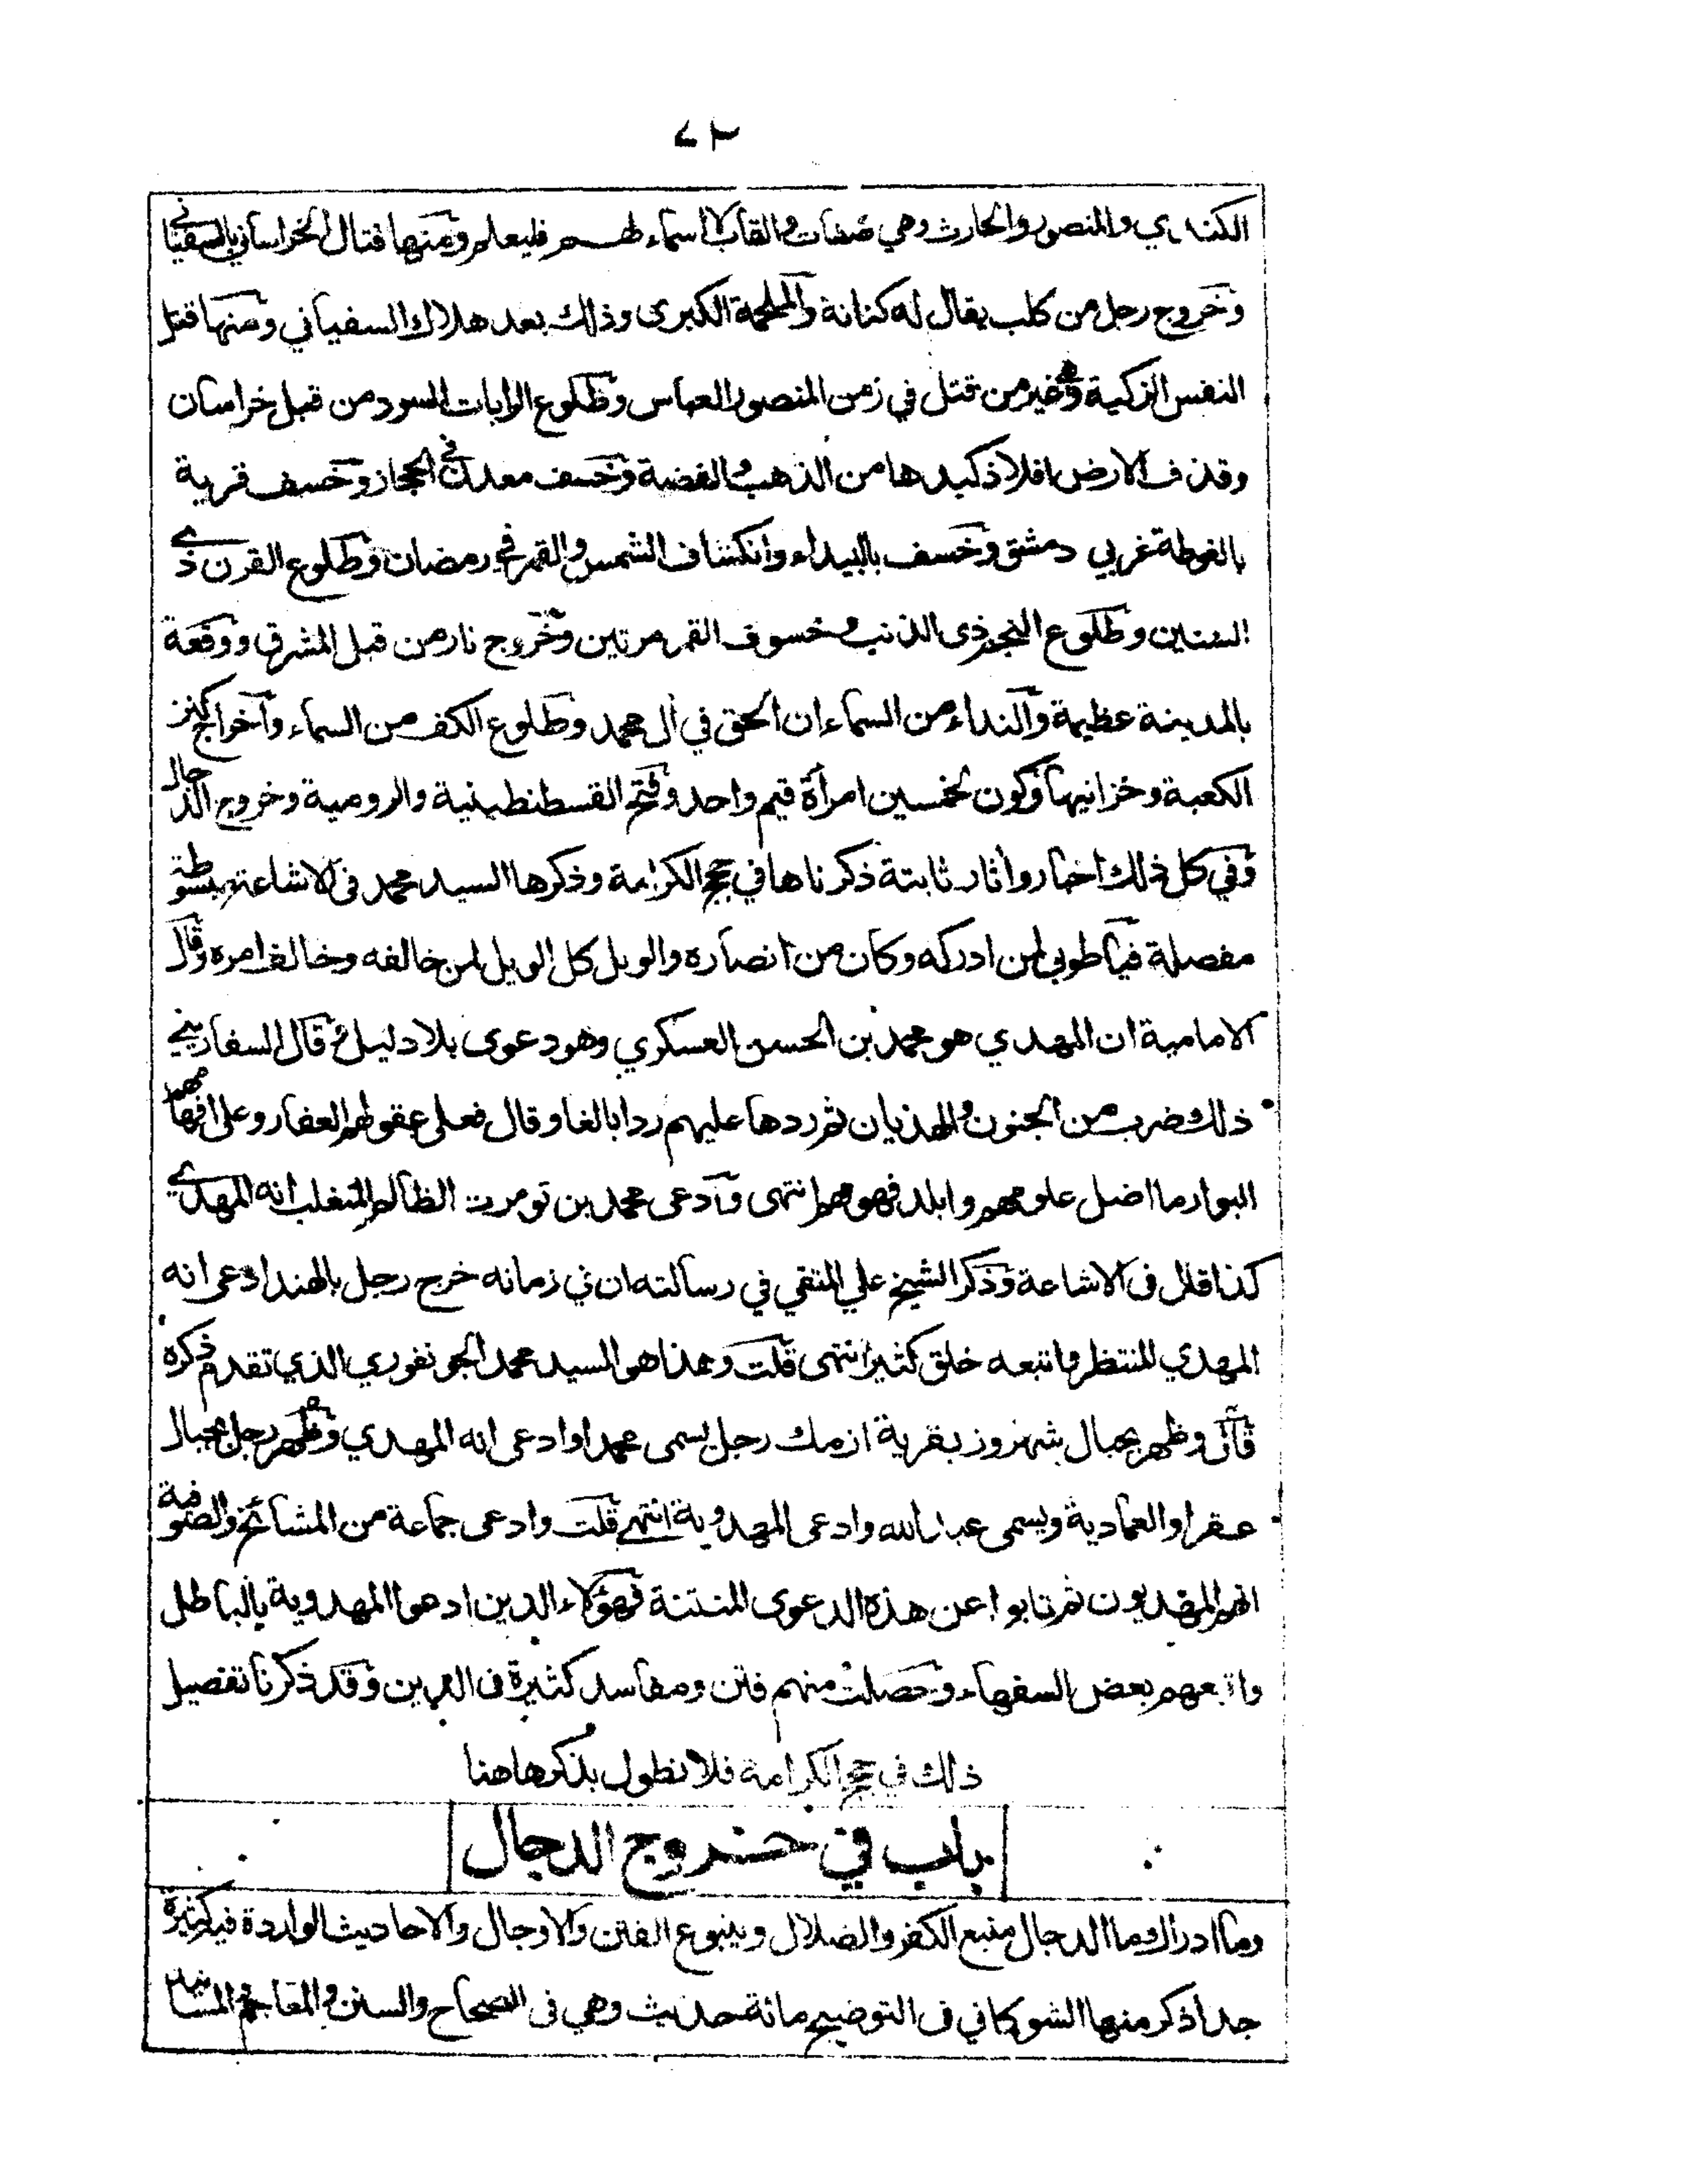 ٧٢
الكندي والمنصور والحارث وهي صفات والقاب لا اسماء لهم فليعلم ومنها قتال الخراساني بالسفياني
وخروج رجل من كلب يقال له كنانة والملحمة الكبرى وذلك بعد هلاك السفياني ومنها قتل
النفس الزكية وهو خير من قتل في زمن المنصور العباس وطلوع الرايات السود من قبل خراسان
وقذف الارض افلاذ كبدها من الذهب والفضة وخسف معدن في الحجاز وخسف قرية
بالغوطة غربي دمشق وخسف بالبيداء وانكساف الشمس والقمر في رمضان وطلوع القرن ذي
السنين وطلوع النجم ذى الذنب وخسوف القمر مرتين وخروج نار من قبل المشرق ووقعة
بالمدينة عظيمة والنداء من السماء ان الحق في آل محمد وطلوع الكف من السماء واخراج كنز
الكعبة وخزانيها وكون لخمسين امرأة قيم واحد وفتح القسطنطينية والرومية وخروج الدجال
وفي كل ذلك اخبار وآثار ثابتة ذكرناها في حجج الكرامة وذكرها السيد محمد فى الاشاعة مبسوطة
مفصلة فيا طوبى لمن ادركه وكان من انصاره والويل كل الويل لمن خالفه وخالف امره وقال
الامامية ان المهدي هو محمد بن الحسن العسكري وهو دعوى بلا دليل قال السفاريني
ذلك ضرب من الجنون والهذيان ثم ردها عليهم ردا بالغا وقال فعلى عقولهم العفار وعلى افهامهم
البوار ما اضل علومهم وابلد فهومهم انتهى وادعى محمد بن تومرت الظالم المتغلب انه المهدي
كذا قال فى الاشاعة وذكر الشيخ علي المتقي في رسالته ان في زمانه خرج رجل بالهند ادعى انه
المهدي المنتظر واتبعه خلق كثير انتهى قلت وهذا هو السيد محمد الجونفوري الذي تقدم ذكره
قال وظهر بجبال شهزوز بقرية ازمك رجل يسمى محمدا وادعى انه المهدي وظهر رجل بجبال
عقرا والعمادية ويسمى عبد الله وادعى المهدوية انتهى قلت وادعى جماعة من المشائخ والصوفية
انهم المهديون ثم تابوا عن هذه الدعوى المنتنة فهؤلاء الذين ادعوا المهدوية بالباطل
واتبعهم بعض السفهاء وحصلت منهم فتن ومفاسد كثيرة فى الدين وقد ذكرنا تفصيل
ذلك في حجج الكرامة فلا نطول بذكرها هنا
باب في خروج الدجال
وما ادراك وما الدجال منبع الكفر والضلال وينبوع الفتن والاوجال والاحاديث الواردة فيه كثيرة
جدا ذكر منها الشوكاني فى التوضيح مائة حديث وهي فى الصحاح والسنن والمعاجم والمسانيد